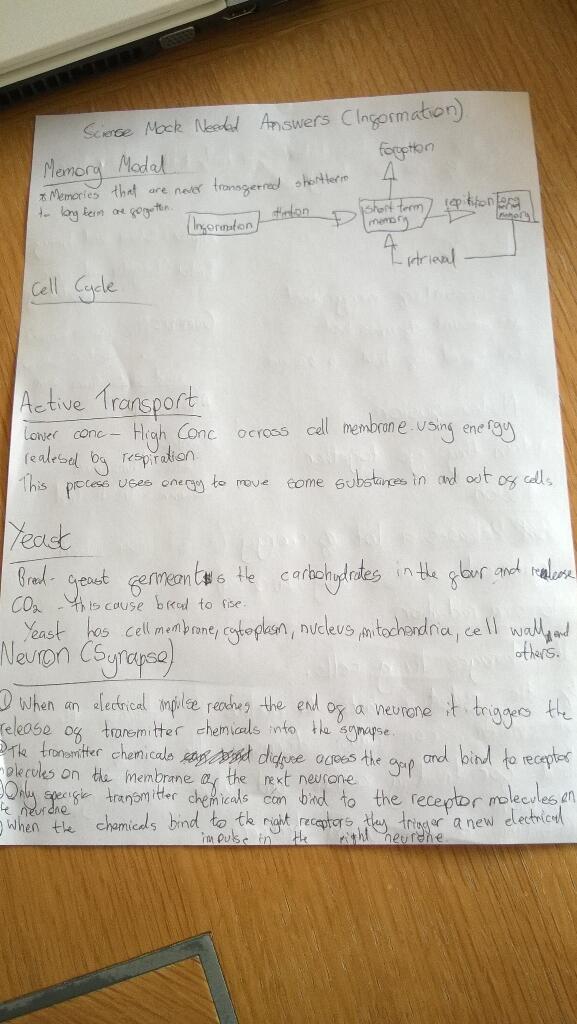 Science Mock Needed Answers (Information)
Memory Modal
* Memories that are never transferred shortterm
to long term are forgotten.
forgotten
Information
short term
memory
repitition
long
term
memory
retrieval
Cell Cycle
Active Transport
Lower conc - High Conc across cell membrane. using energy
realesed by respiration.
This process uses energy to move some substances in and out of cells
Yeast
Bread- yeast the carbohydrates in the flour and realease
CO2 - this cause bread to rise.
Yeast has cell membrane, cytoplasm, nucleus, mitochondria, cell wall and
others.
Neuron (Synapse)
① When an electrical impulse reaches the end of a neurone it triggers the
release of transmitter chemicals into the synapse.
The transmitter chemicals diffuse across the gap and bind to receptor
molecules on the membrane of the next neurone.
Only specific transmitter chemicals can bind to the receptor molecules on
the neurone
When the chemicals bind to the right receptors they trigger a new electrical
impulse in the right neurone.